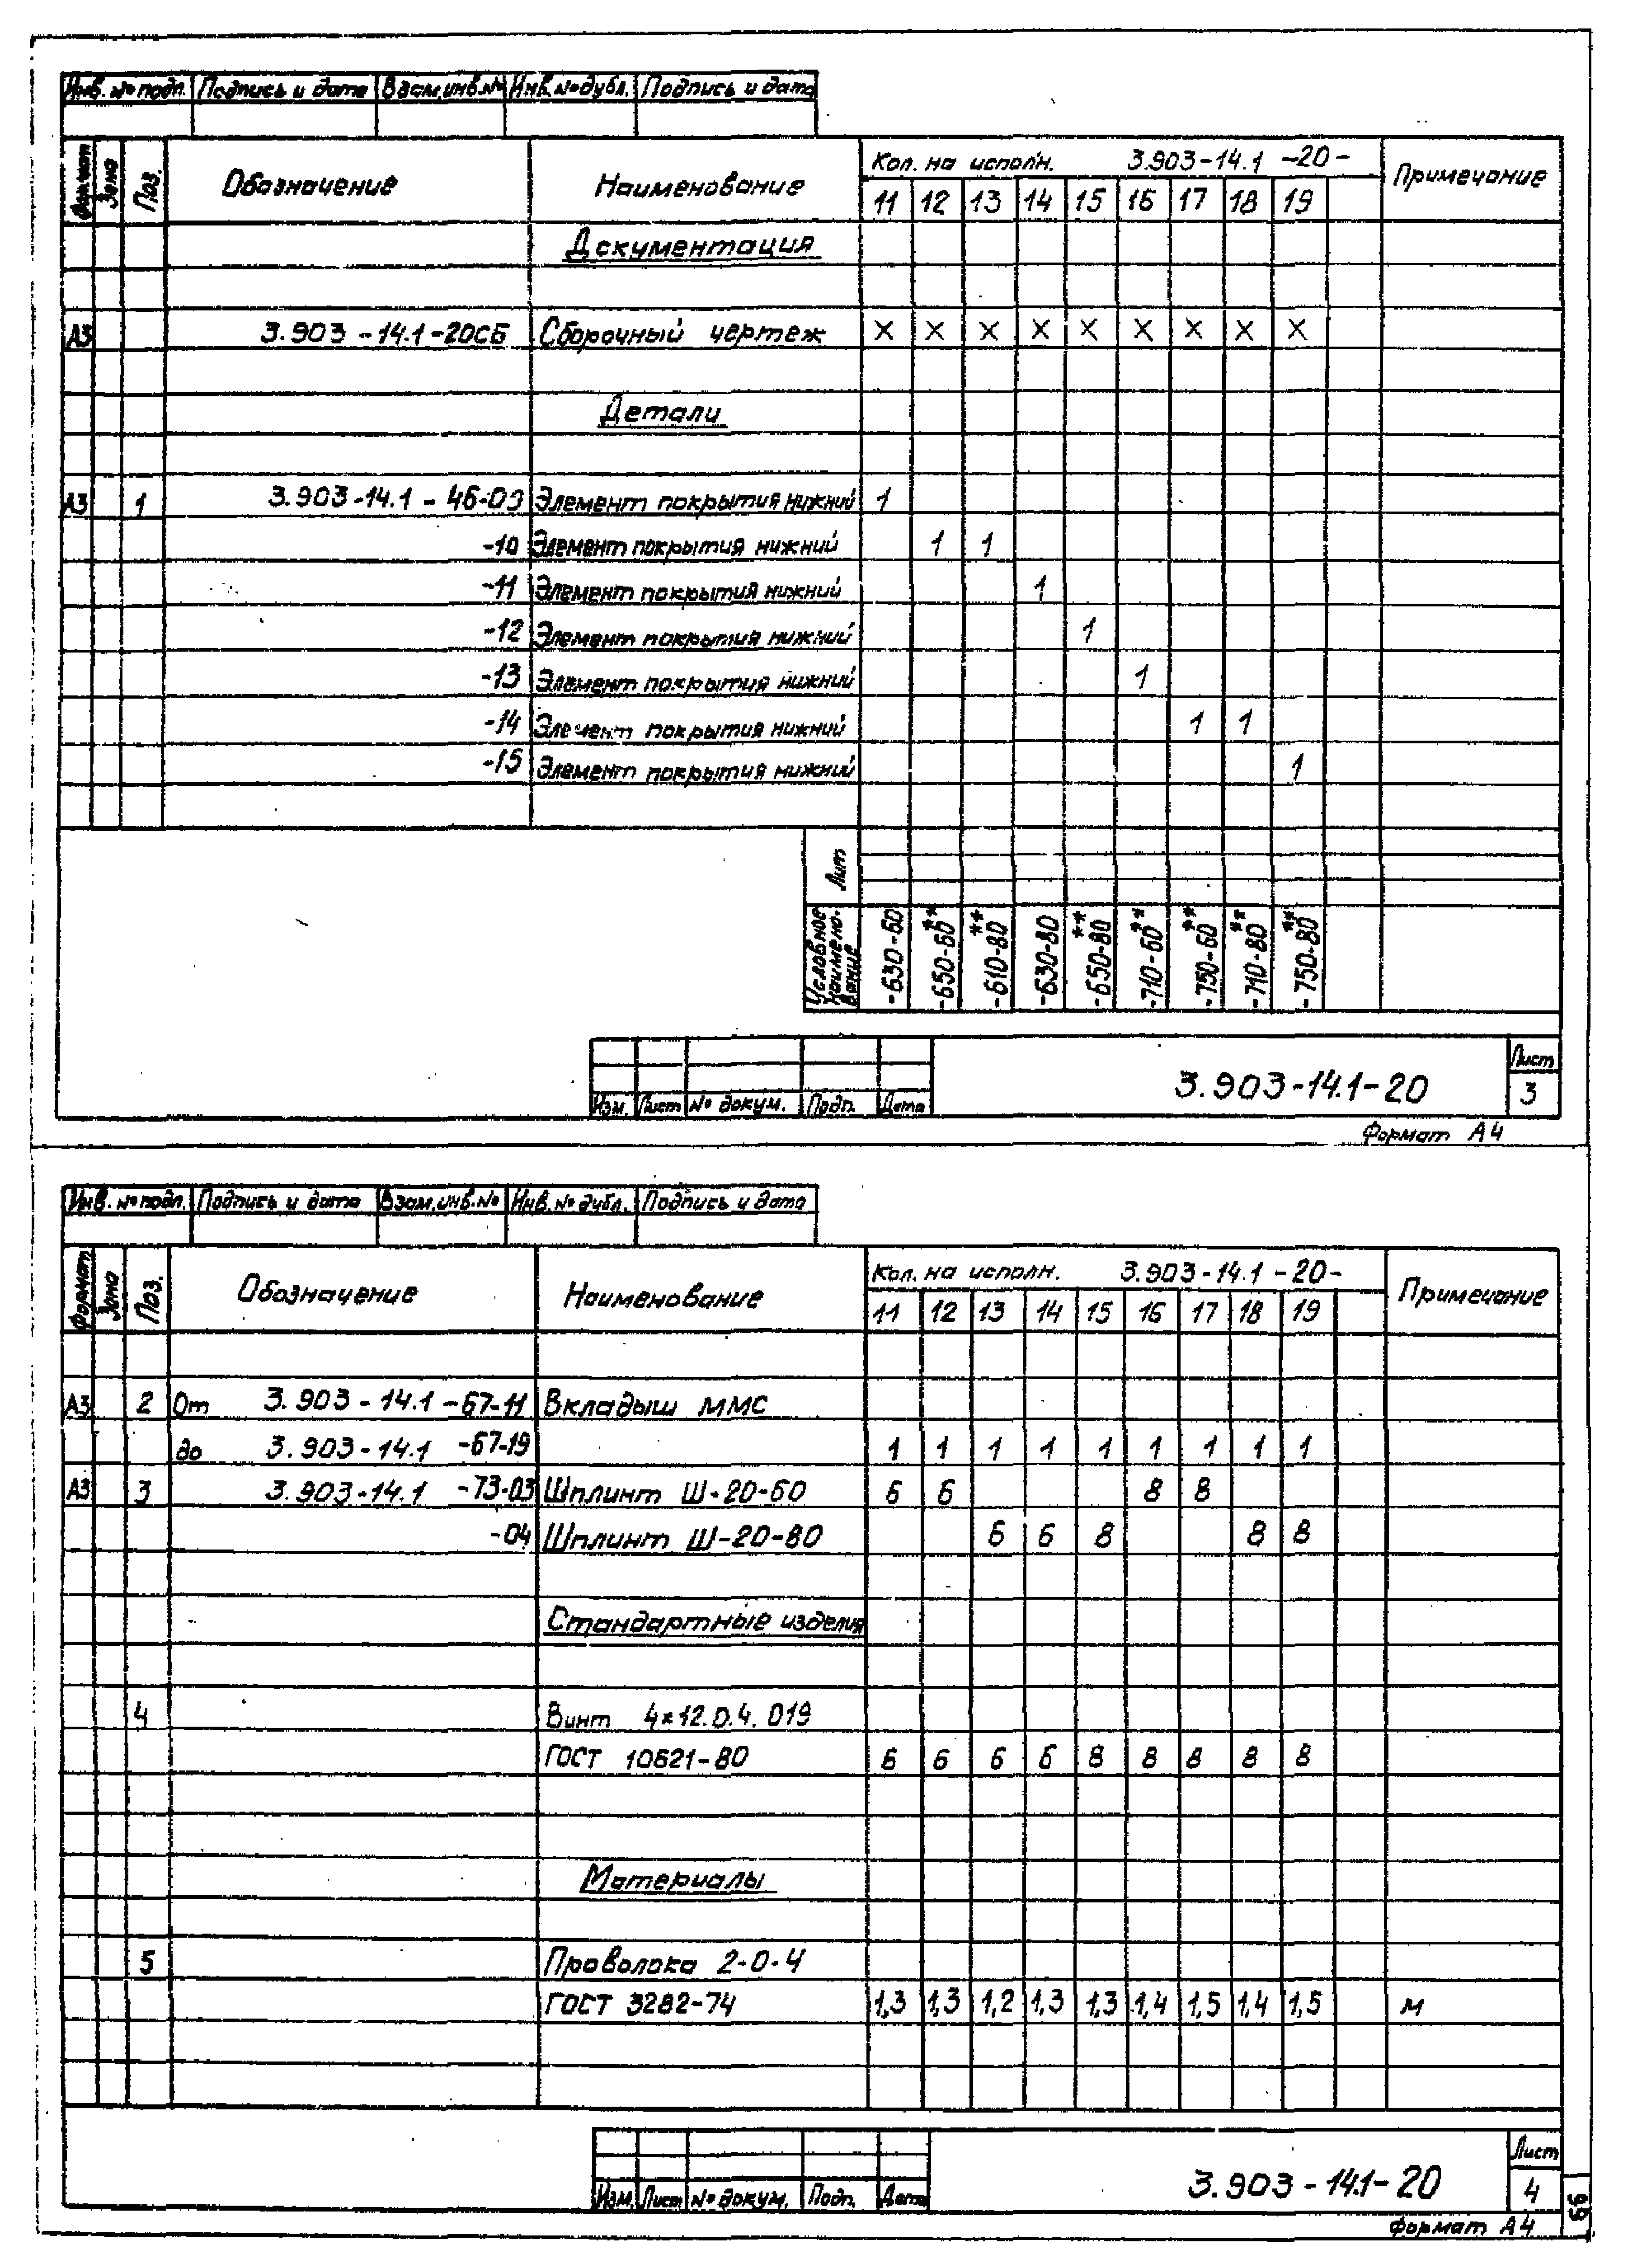 Инв. № подл. Подпись и дата Взам.инв.№ Инв.№дубл. Подпись и дата
Формат Зона Поз. Обозначение Наименование Кол. на исполн. 3.903-14.1 -20- Примечание
11 12 13 14 15 16 17 18 19
Документация
А3 3.903-14.1-20СБ Сборочный чертеж × × × × × × × × ×
Детали
А3 1 3.903-14.1-46-09 Элемент покрытия нижний 1
-10 Элемент покрытия нижний 1 1
-11 Элемент покрытия нижний 1
-12 Элемент покрытия нижний 1
-13 Элемент покрытия нижний 1
-14 Элемент покрытия нижний 1 1
-15 Элемент покрытия нижний 1
Лит
Условное наимено-вание -630-60 -650-60** -610-80** -630-80 -650-80** -710-60** -750-60** -710-80** -750-80**
Изм. Лист № докум. Подп. Дата 3.903-14.1-20 Лист 3
Формат А4
Инв. № подл. Подпись и дата Взам.инв.№ Инв.№ дубл. Подпись и дата
Формат Зона Поз. Обозначение Наименование Кол. на исполн. 3.903-14.1 -20- Примечание
11 12 13 14 15 16 17 18 19
А3 2 От 3.903-14.1-67-11 Вкладыш ММС
до 3.903-14.1 -67-19 1 1 1 1 1 1 1 1 1
А3 3 3.903-14.1 -73-03 Шплинт Ш-20-60 6 6 8 8
-04 Шплинт Ш-20-80 6 6 8 8 8
Стандартные изделия
4 Винт 4×12.0.4.019
ГОСТ 10621-80 6 6 6 6 8 8 8 8 8
Материалы
5 Проволока 2-0-4
ГОСТ 3282-74 1,3 1,3 1,2 1,3 1,3 1,4 1,5 1,4 1,5 м
Изм. Лист № докум. Подп. Дата 3.903-14.1-20 Лист 4
Формат А4
66